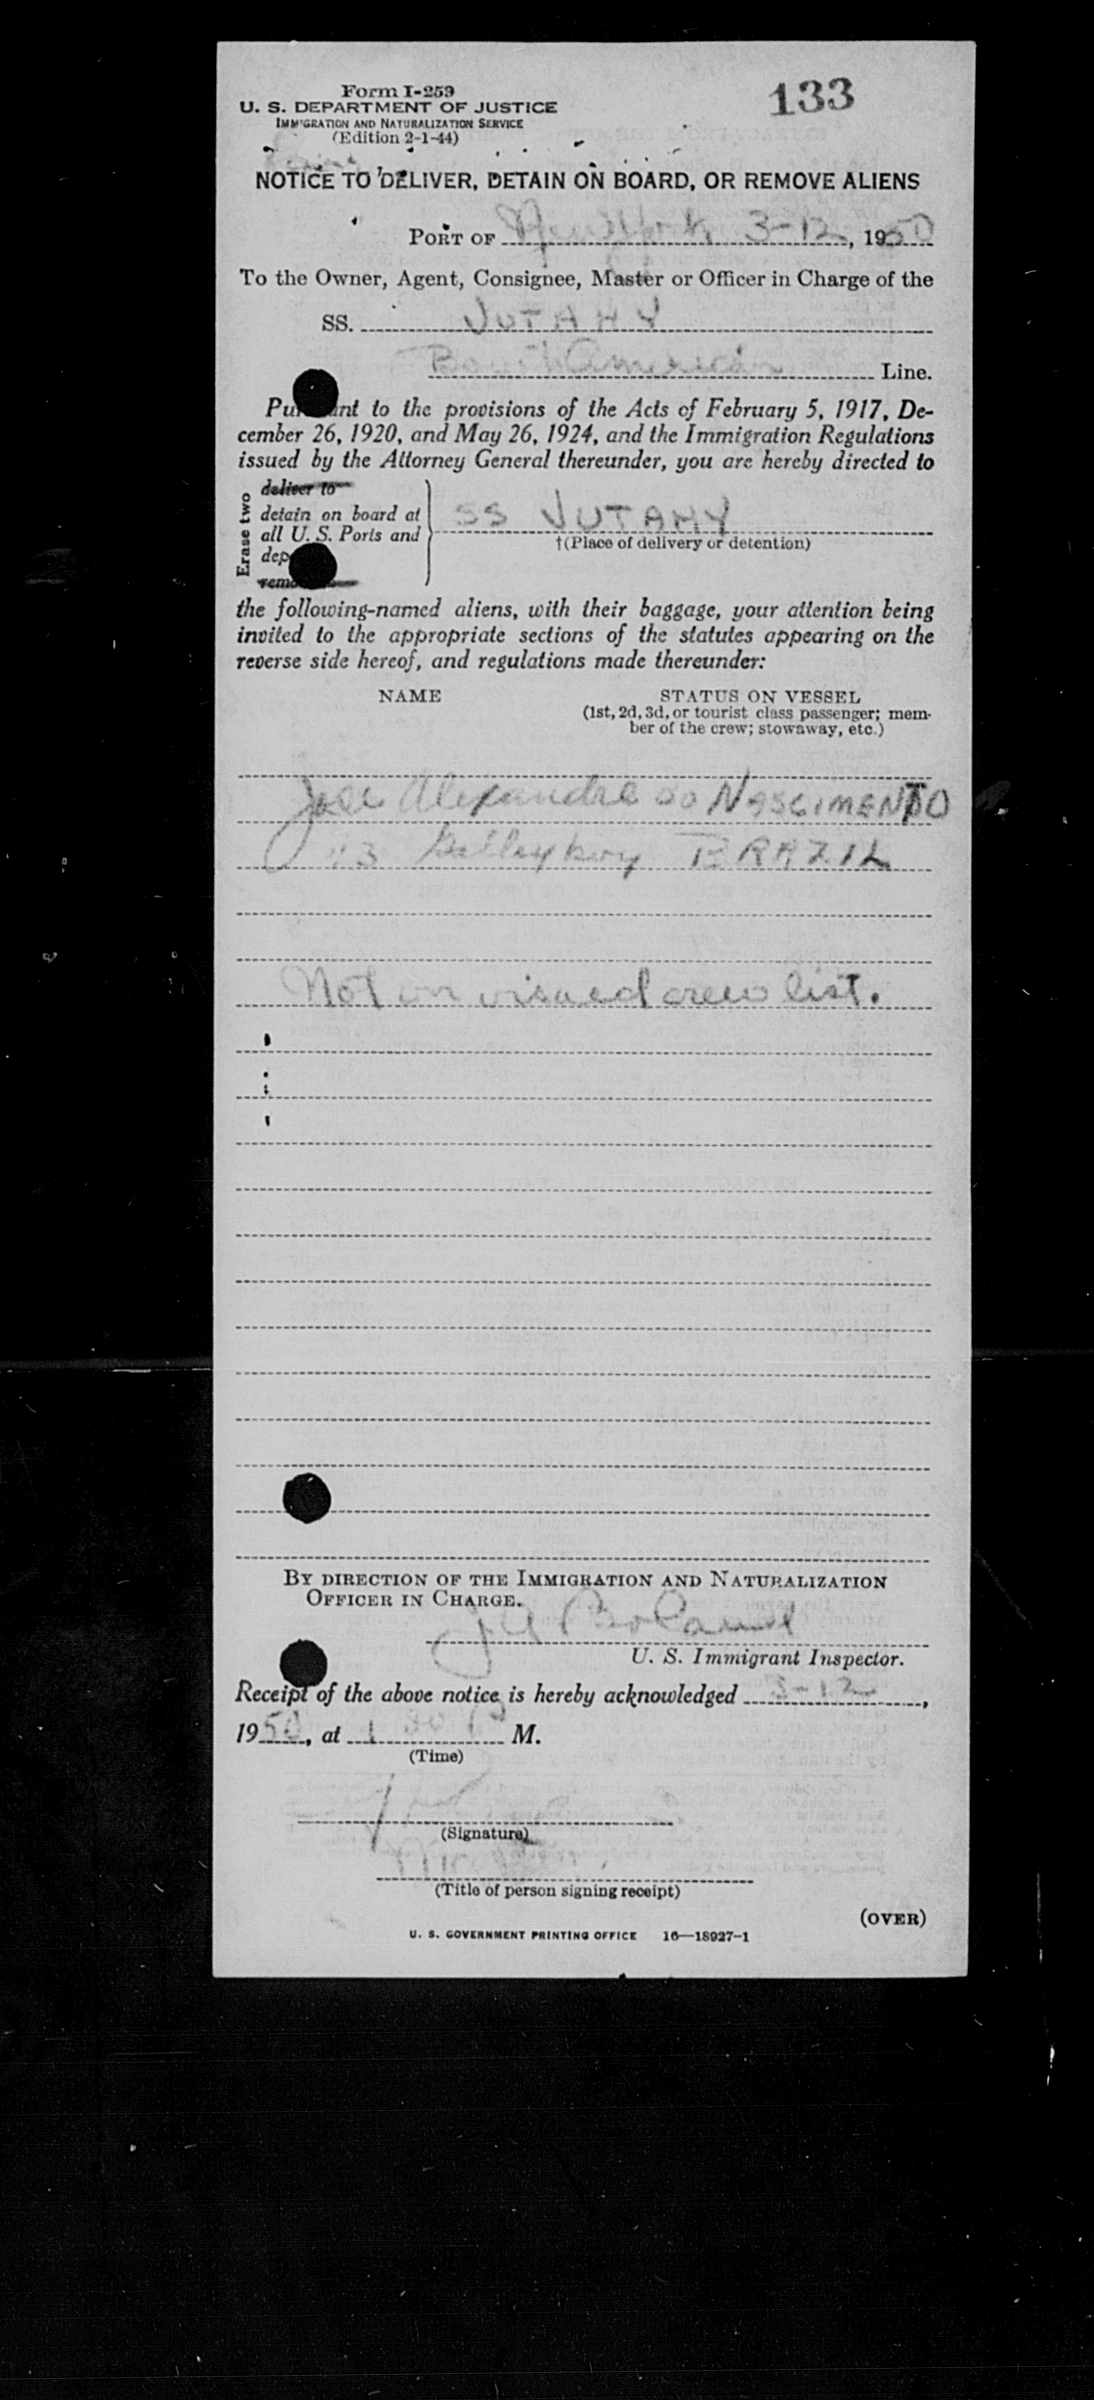 133
Form I-259
U. S. DEPARTMENT OF JUSTICE
IMMIGRATION AND NATURALIZATION SERVICE
(Edition 2-1-44)
NOTICE TO DELIVER, DETAIN ON BOARD, OR REMOVE ALIENS
PORT OF New York 3-12, 1950
To the Owner, Agent, Consignee, Master or Officer in Charge of the
SS. JUTAHY
South American Line.
Pursuant to the provisions of the Acts of February 5, 1917, De-
cember 26, 1920, and May 26, 1924, and the Immigration Regulations
issued by the Attorney General thereunder, you are hereby directed to
Erase two
deliver to
detain on board at
all U. S. Ports and
dep
remo
SS JUTAHY
†(Place of delivery or detention)
the following-named aliens, with their baggage, your attention being
invited to the appropriate sections of the statutes appearing on the
reverse side hereof, and regulations made thereunder:
NAME
STATUS ON VESSEL
(1st, 2d, 3d, or tourist class passenger; mem-
ber of the crew; stowaway, etc.)
Jose Alexandre do NASCIMENTO
Galleyboy BRAZIL
Not on visaed crew list.
BY DIRECTION OF THE IMMIGRATION AND NATURALIZATION
OFFICER IN CHARGE.
U. S. Immigrant Inspector.
Receipt of the above notice is hereby acknowledged 3-12,
1950, at 1 30 P M.
(Time)
(Signature)
(Title of person signing receipt)
(OVER)
U. S. GOVERNMENT PRINTING OFFICE 16—18927-1